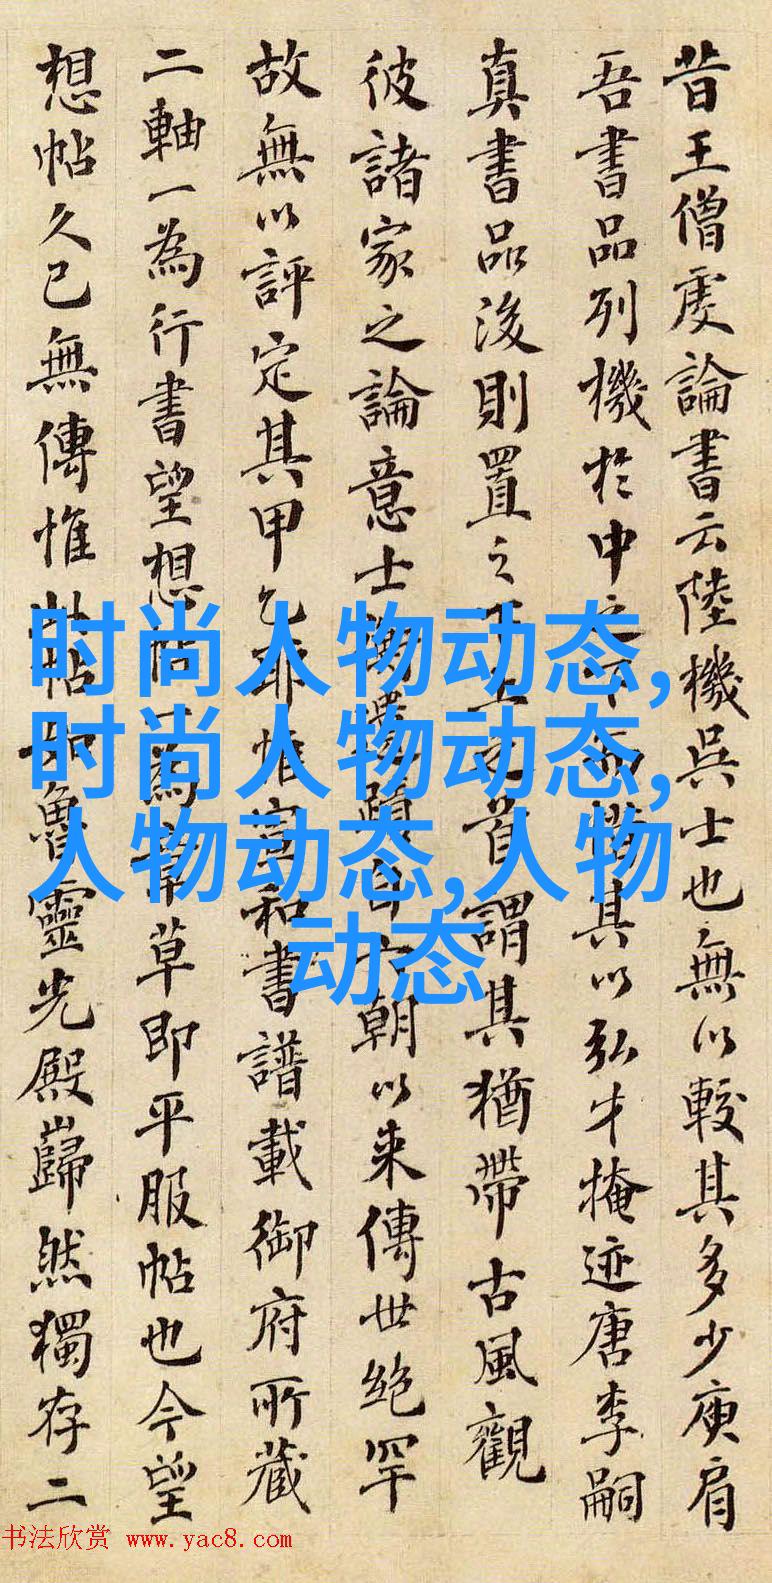 昔王僧虔論書云陸機吳士也無以較其多少庾肩
吾書品列機於中之下而惜其以弘才掩迹唐李嗣
真書品後則置之下上之首謂其猶帶古風觀
彼諸家之論意士衡遺蹟自六朝以来傳世絶罕
故無以評定其甲乙耶惟宣和書譜載御府所藏
二軸一為行書望想帖一為章草即平服帖也今望
想帖久已無傳惟此帖如魯靈光殿巋然獨存二
时尚人物动态,
时尚人物动态,
人物动态,人物
动态
书法欣赏 www.yac8.com